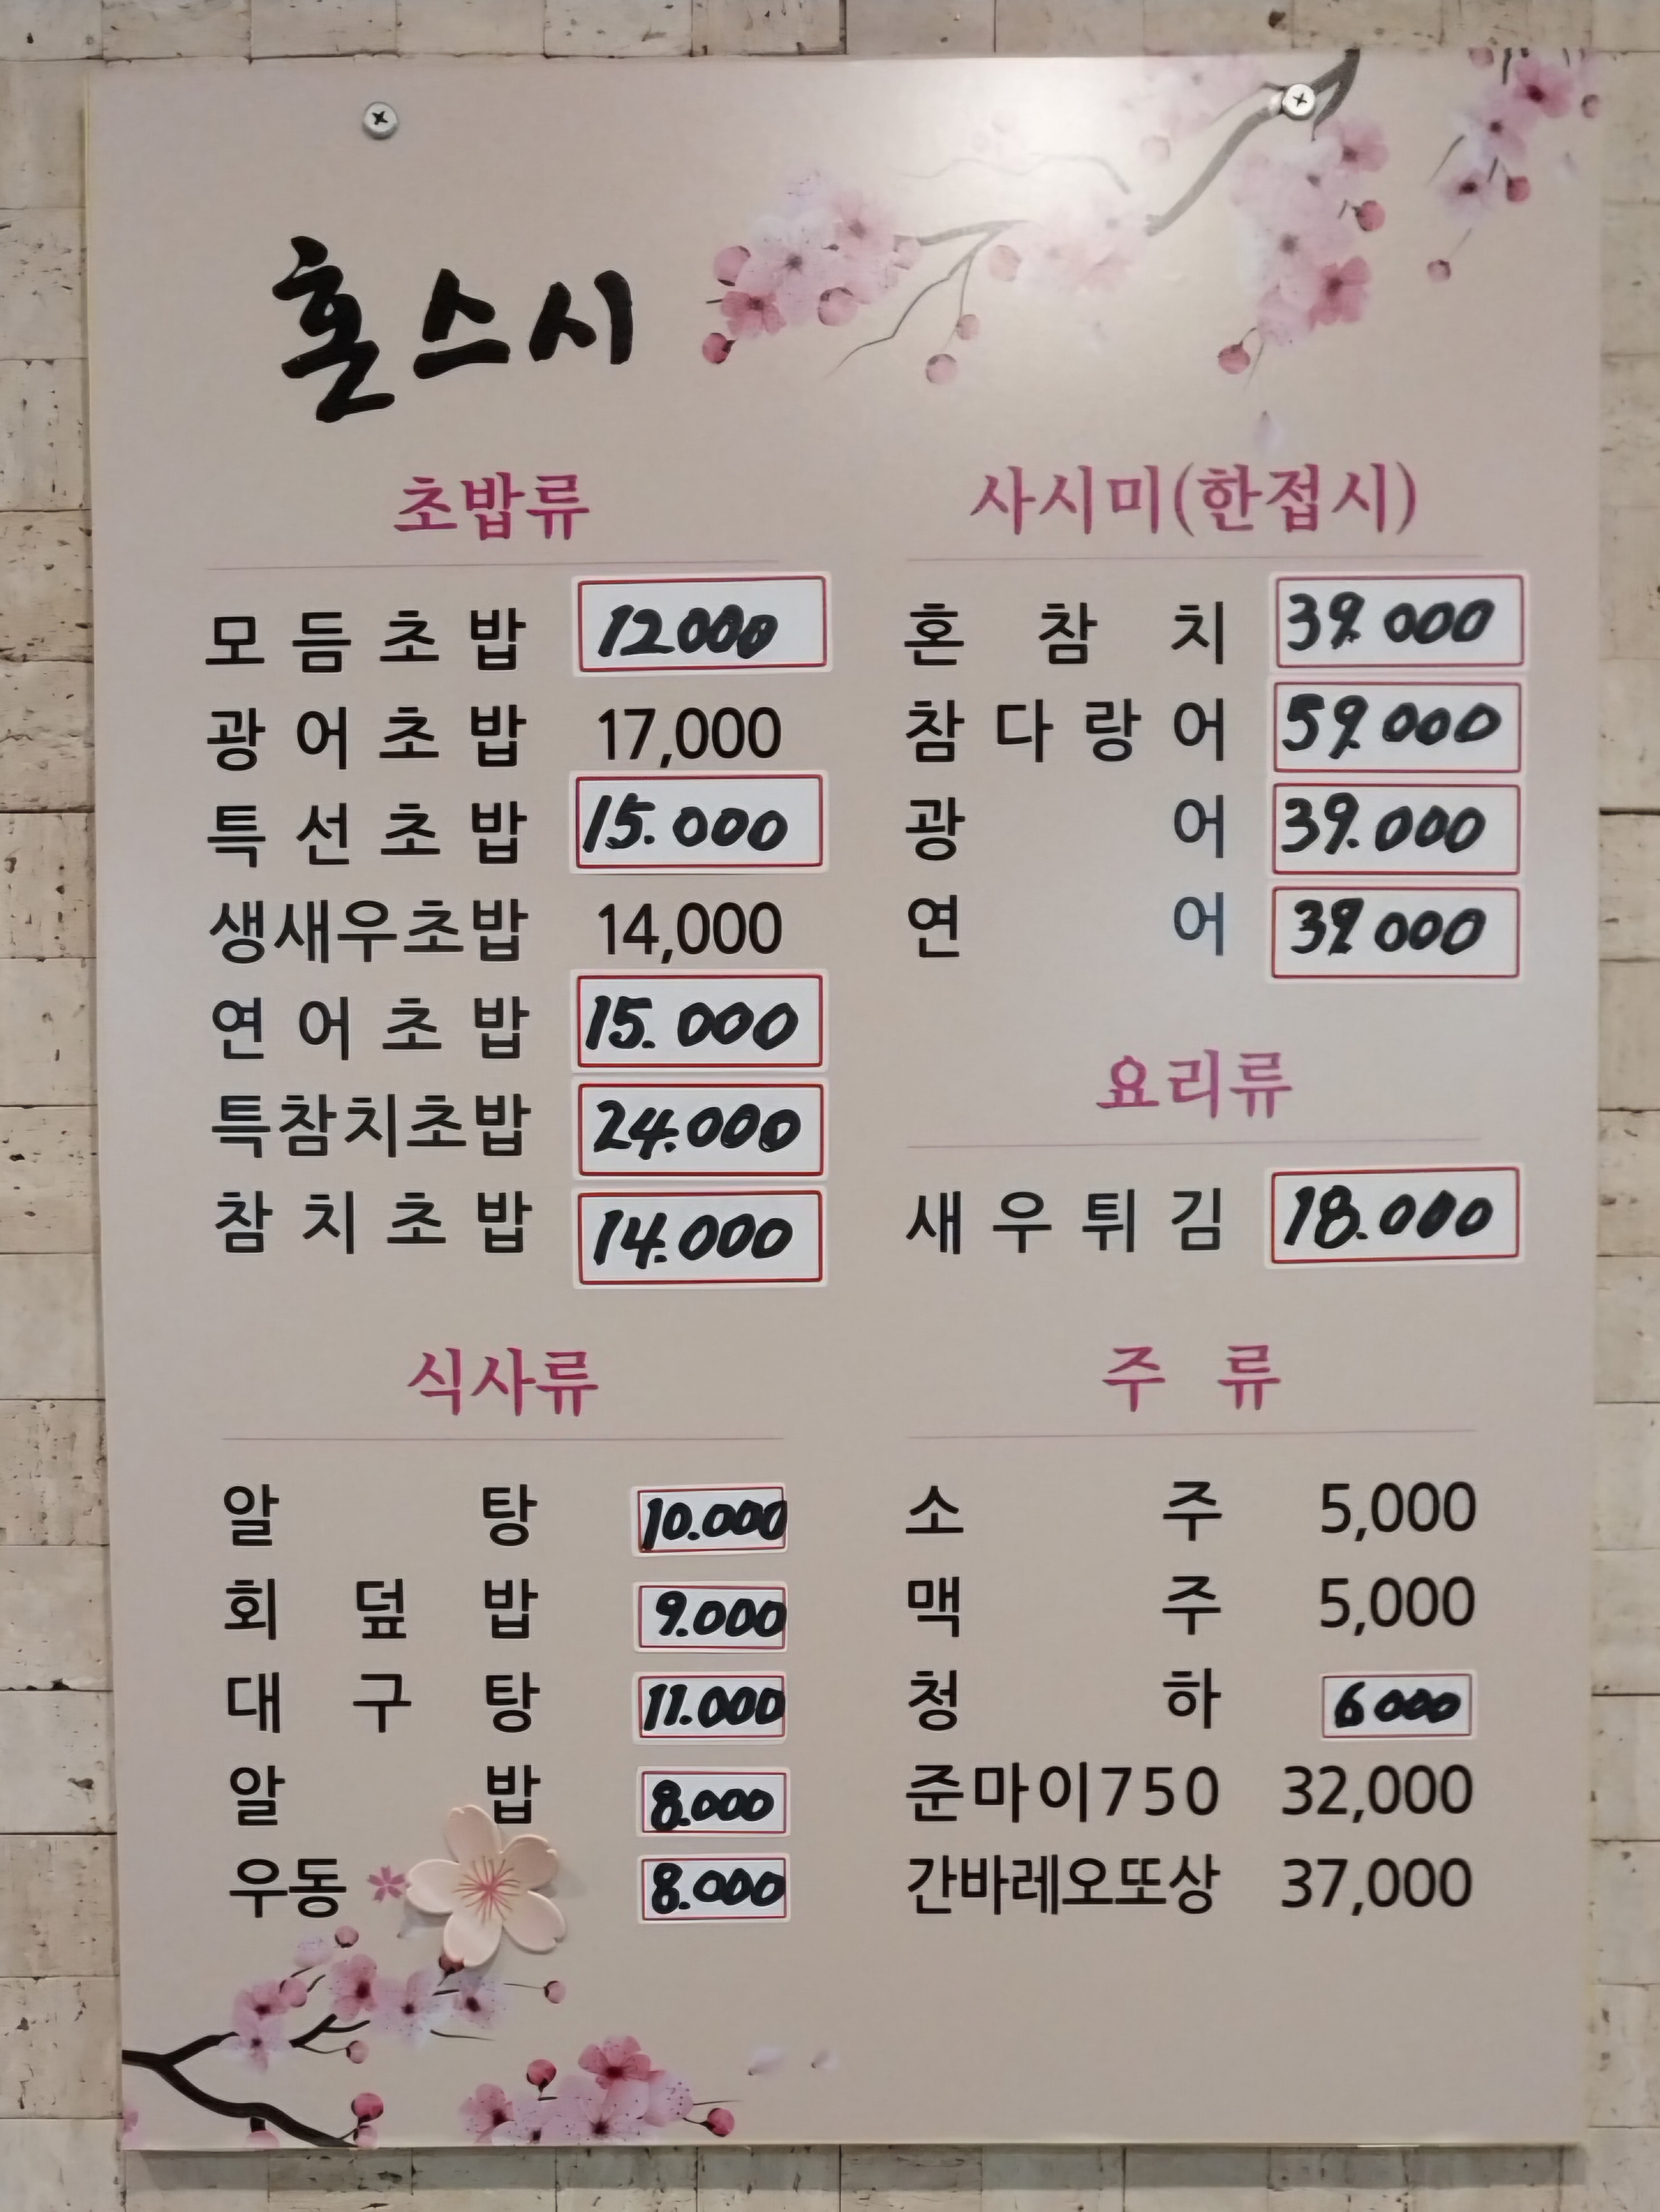 혼스시
초밥류
모듬초밥 12000
광어초밥 17,000
특선초밥 15.000
생새우초밥 14,000
연어초밥 15.000
특참치초밥 24.000
참치초밥 14.000
사시미(한접시)
혼참치 39.000
참다랑어 59.000
광어 39.000
연어 39.000
요리류
새우튀김 18.000
식사류
알탕 10.000
회덮밥 9.000
대구탕 11.000
알밥 8.000
우동 8.000
주 류
소주 5,000
맥주 5,000
청하 6000
준마이750 32,000
간바레오또상 37,000